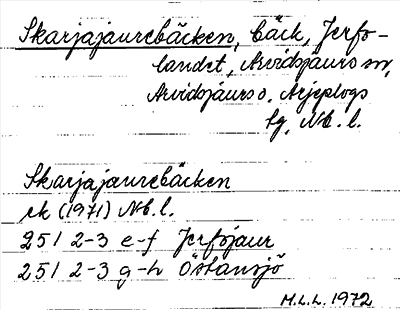 Skarjajaurebäcken, bäck, Jerfo-
landet, Arvidsjaurs sn,
Arvidsjaurs o. Arjeplogs
lg, Nb. l.
Skarjajaurebäcken
ek (1971) Nb. l.
25I 2-3 e-f Jerfojaur
25I 2-3 g-h Östansjö
M.L.L. 1972